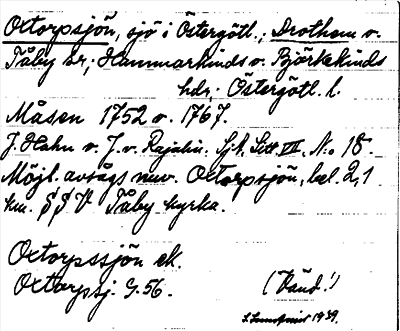 Oxtorpsjön, sjö i Östergötl.; Drothem o.
Tåby sr; Hammarkinds o. Björkekinds
hdr; Östergötl. l.
Måsen 1752 o. 1767.
J. Hahn o. J. v. Rajalin. Sjk. Litt VII, No 18.
Möjl. avsågs nuv. Oxtorpsjön, bel. 2,1
km. SSV Tåby kyrka.
Oxtorpssjön ek.
Oxtorpsj. G. 56.
(Vänd!)
1939.